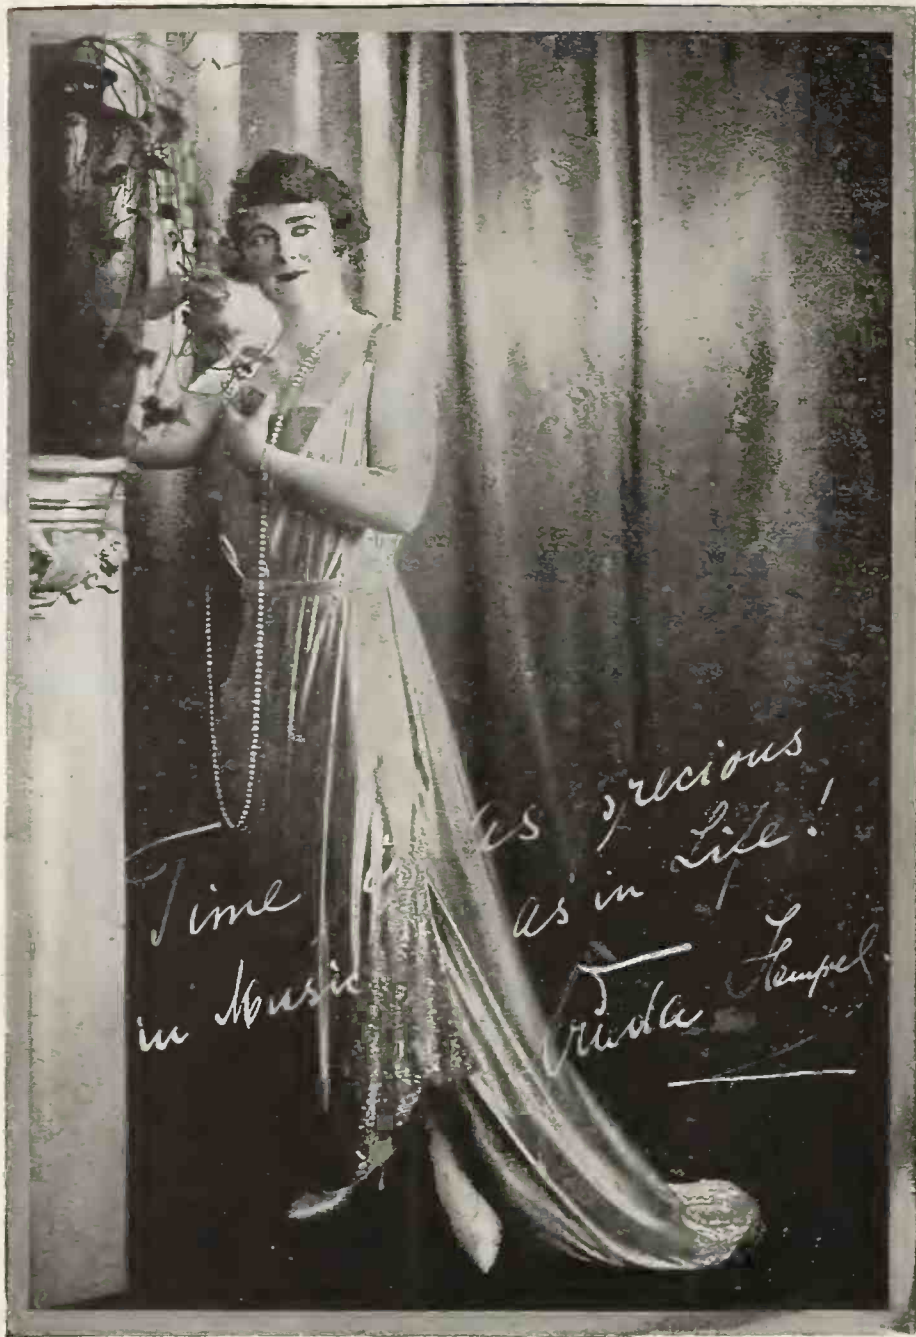 Time is as precious
in Music as in Life!
Frieda Hempel